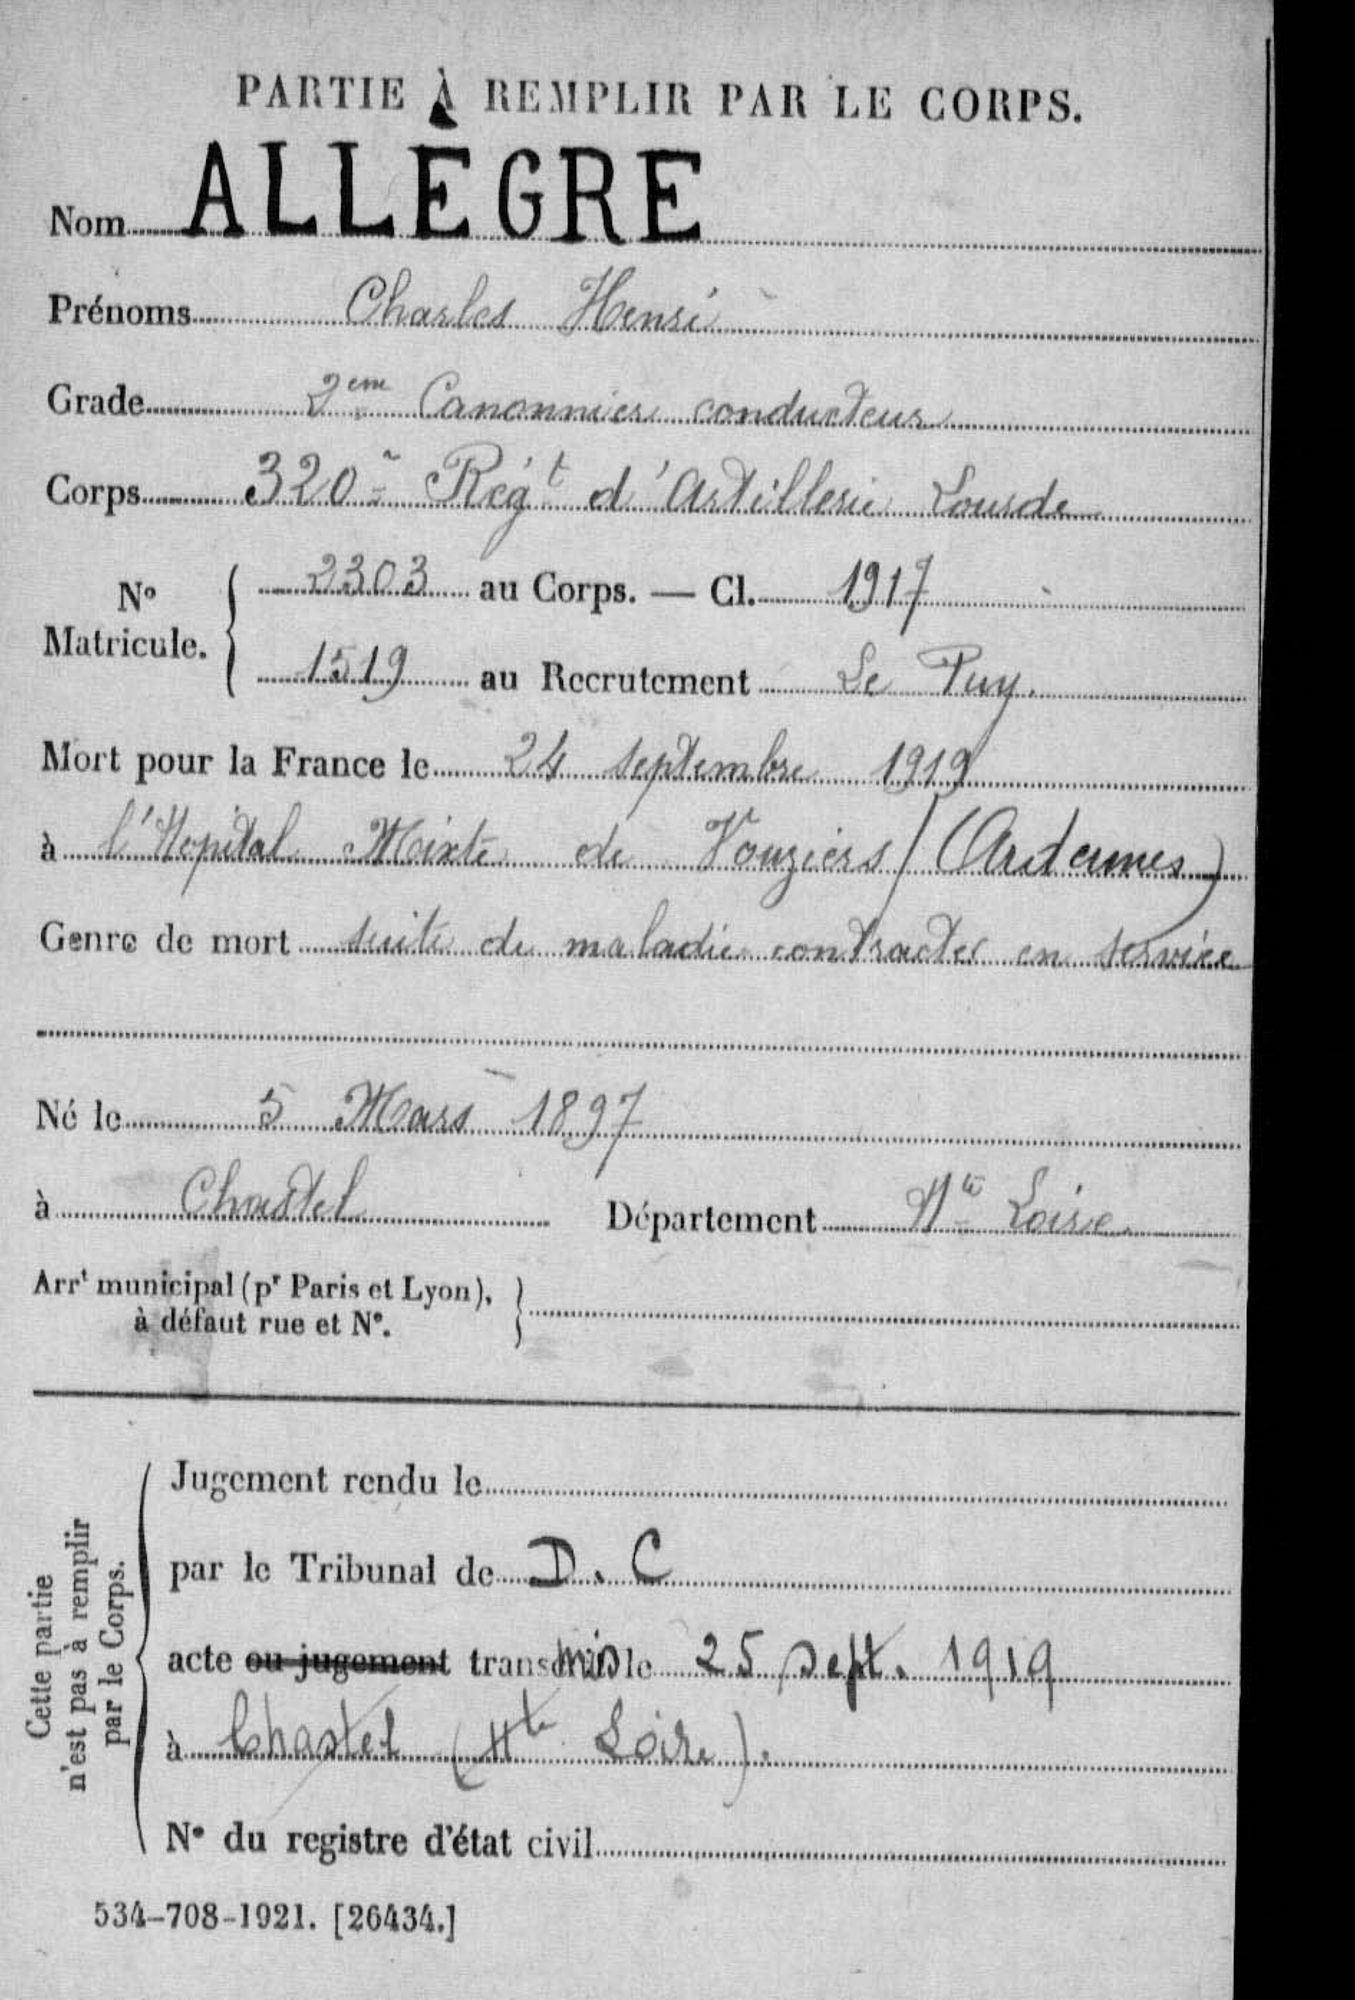 PARTIE À REMPLIR PAR LE CORPS.
Nom ALLÈGRE
Prénoms Charles Henri
Grade 2em Canonnier conducteur
Corps 320e Régt d'Artillerie Lourde
No Matricule. { 2303 au Corps. — Cl. 1917
1519 au Recrutement Le Puy.
Mort pour la France le 24 septembre 1919
à l'Hopital Mixte de Vouziers (Ardennes)
Genre de mort suite de maladie contracter en service
Né le 5 Mars 1897
à Chastel Département Hte Loire
Arrt municipal (pr Paris et Lyon), à défaut rue et No. }
Cette partie n'est pas à remplir par le Corps.
Jugement rendu le
par le Tribunal de D. C
acte ou jugement transmis le 25 sept. 1919
à Chastel (Hte Loire).
No du registre d'état civil
534-708-1921. [26434.]